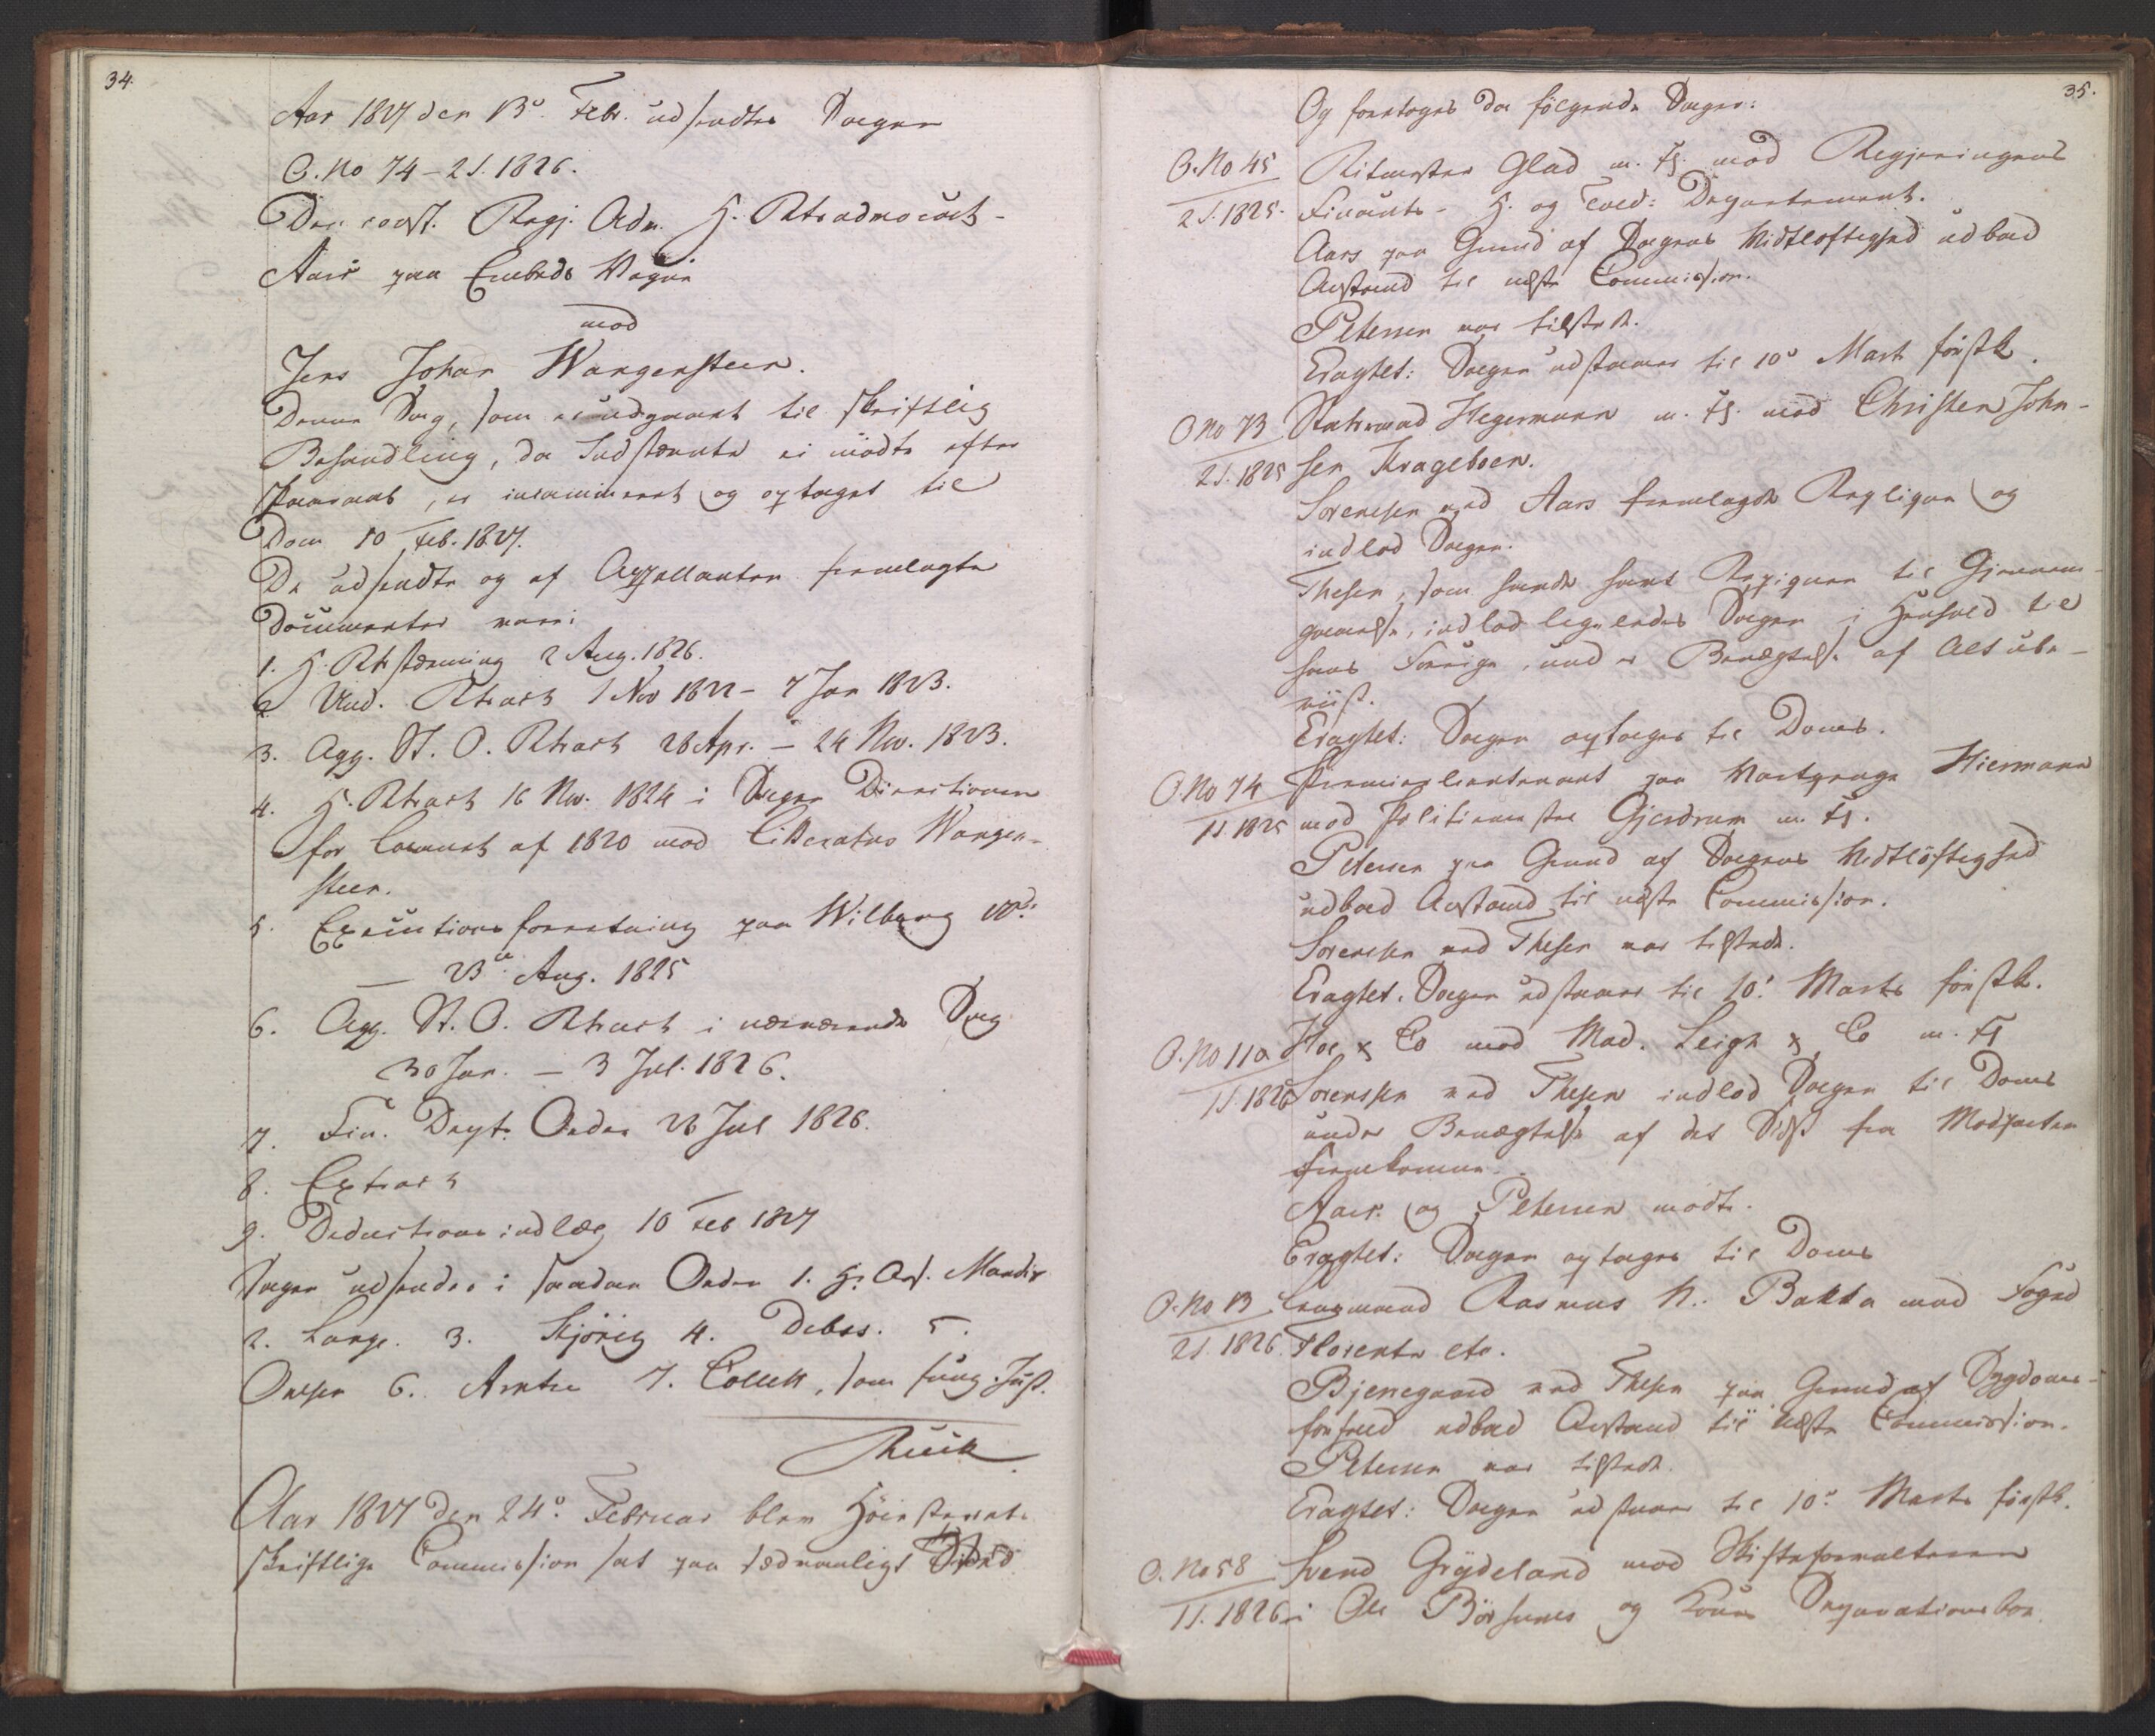 34.
Aar 1827 den 13de Febr. udsendtes Sagen
O. No 74 - 2 S. 1826.
Den const. Regj. Adv. H. Rtsadvocat
Aars paa Embeds Vegne
mod
Jens Johan Wangensteen.
Denne Sag, som er udgaaet til skriftlig
Behandling, da Indstævnte ei mødte efter
Paaraab, er incamineret og optaget til
Dom 10 Feb. 1827.
De udsendte og af Appellanten fremlagte
Documenter vare:
1. H. Rtsstævning 2 Aug. 1826.
2. Und. Rtsact 1 Nov 1822 - 7 Jan 1823.
3. App. St. O. Rtsact 28 Apr. - 24 Nov. 1823.
4. H. Rtsact 16 Nov. 1824 i Sagen Directionen
for Laanet af 1820 mod Litteratus Wangen-
steen.
5. Executionsforretning paa Wilberg
23de Aug. 1825
6. App. St. O. Rtsact i nærværende Sag
30 Jan. - 3 Jul. 1826.
7. Fin. Dept. Order 28 Jul 1826.
8. Extract
9. Deductionsindlæg 10 Feb 1827
Sagen udsendes i saadan Orden 1. H. Ass. Mandix
2. Lange. 3. Skjönig 4. Debes. 5.
Omsen 6. Arntze 7. Collett, som fung. Just.
Aar 1827 den 24de Februar blev Höiesterets
skriftlige Commission sat paa sædvanligt Sted
35.
Og foretoges da følgende Sager:
O. No 45
2 S. 1825.
Ritmester Glad m. Fl. mod Regjeringens
Finants- H. og Told: Departement.
Aars paa Grund af Sagens Vidtløftighed udbad
Anstand til næste Commission.
Petersen var tilstede.
Eragtet: Sagen udstaaer til 10de Marts förstk.
O No 73
2 S. 1825
Statsraad Hegermann m. Fl. mod Christen John-
sen Krageboen.
Sorensen ved Aars fremlagde Repliqven og
indlod Sagen.
Thesen, som havde havt Repliqven til Gjennem-
gaaelse, indlod ligeledes Sagen i Henhold til
hans Forrige, under Benægtelse af Alt ube-
viist.
Eragtet: Sagen optages til Doms.
O. No 74
1 S. 1825
Premierlieutenant paa Vartpenge Hiermann
mod Politiemester Gjerdrum m. Fl.
Petersen paa Grund af Sagens Vidtløftighed
udbad Anstand til næste Commission.
Sorensen ved Thesen var tilstede.
Eragtet. Sagen udstaaer til 10de Marts förstk.
O. No 110
1 S 1826
Hoe & Co mod Mad. Leigh & Co m. Fl
Sorensen ved Thesen indlod Sagen til Doms
under Benægtelse af det Sidst fra Modparten
fremkomne.
Aars og Petersen mødte.
Eragtet: Sagen optages til Doms
O. No 13
2 S. 1826
Laugmand Rasmus N. Bakka mod Foged
Florentz etc.
Bjerregaard ved Thesen paa Grund af Sygdoms-
forfald udbad Anstand til næste Commission.
Petersen var tilstede.
Eragtet: Sagen udstaaer til 10de Marts förstk.
O. No 58
1 S. 1826
Svend Grydeland mod Skifteforvalteren
i Ole Börsums og Kones Separationsboe